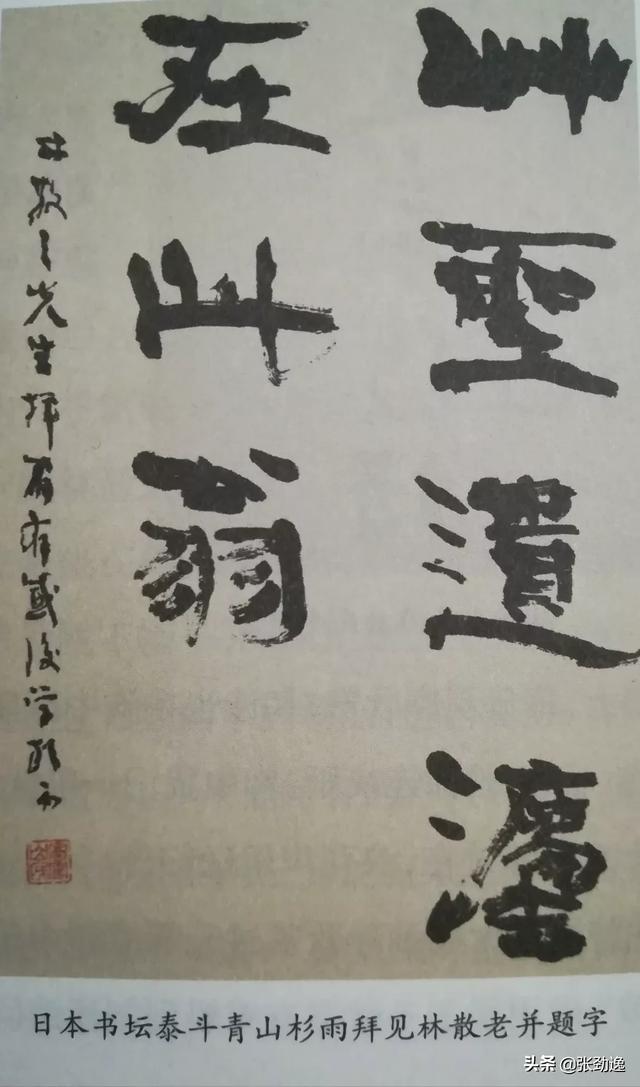 草聖遺灋
在此翁
林散之先生拝眉有感後学杉雨
日本书坛泰斗青山杉雨拜见林散老并题字
头条 @张劲逸